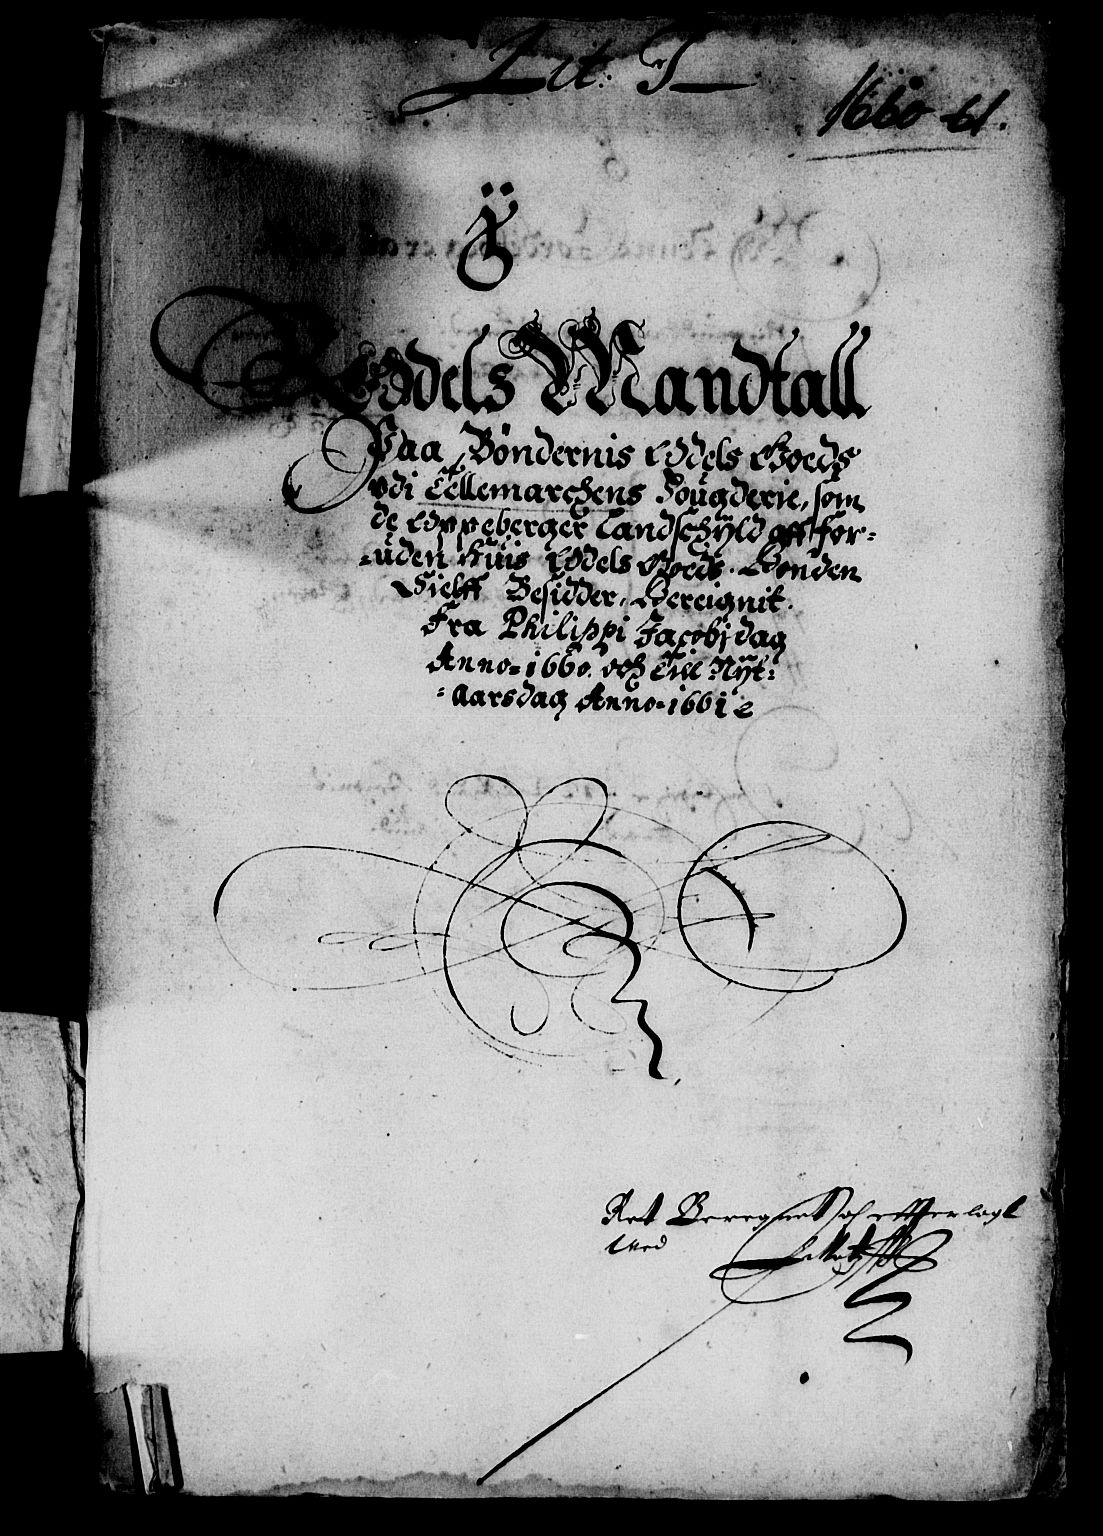 Lit: J
1660-61.
Oddels Mandtall
Paa Bøndernis Oddels Goeds
udi Tellemarchens Fougderie, som
de Oppeberger Landschÿld aff for-
-uden huis Oddels Goeds. Bonden
Sielff Besidder, Bereignit.
Fra Philippi Jacobj dag
Anno-1660. och Till Nÿt-
-aarsdag Anno-1661
Ret Beregnet och offuerlagt
Med